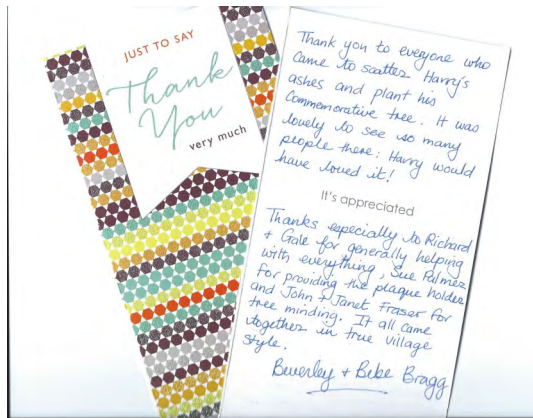 JUST TO SAY
Thank
You
very much
Thank you to everyone who
came to scatter Harry's
ashes and plant his
Commemorative tree. It was
lovely to see so many
people there: Harry would
have loved it!
It's appreciated
Thanks especially to Richard
+ Gale for generally helping
with everything, Sue Palmer
for providing the plaque holder
and John + Janet Fraser for
tree minding. It all came
together in true Village
Style.
Beverley + Bebe Bragg